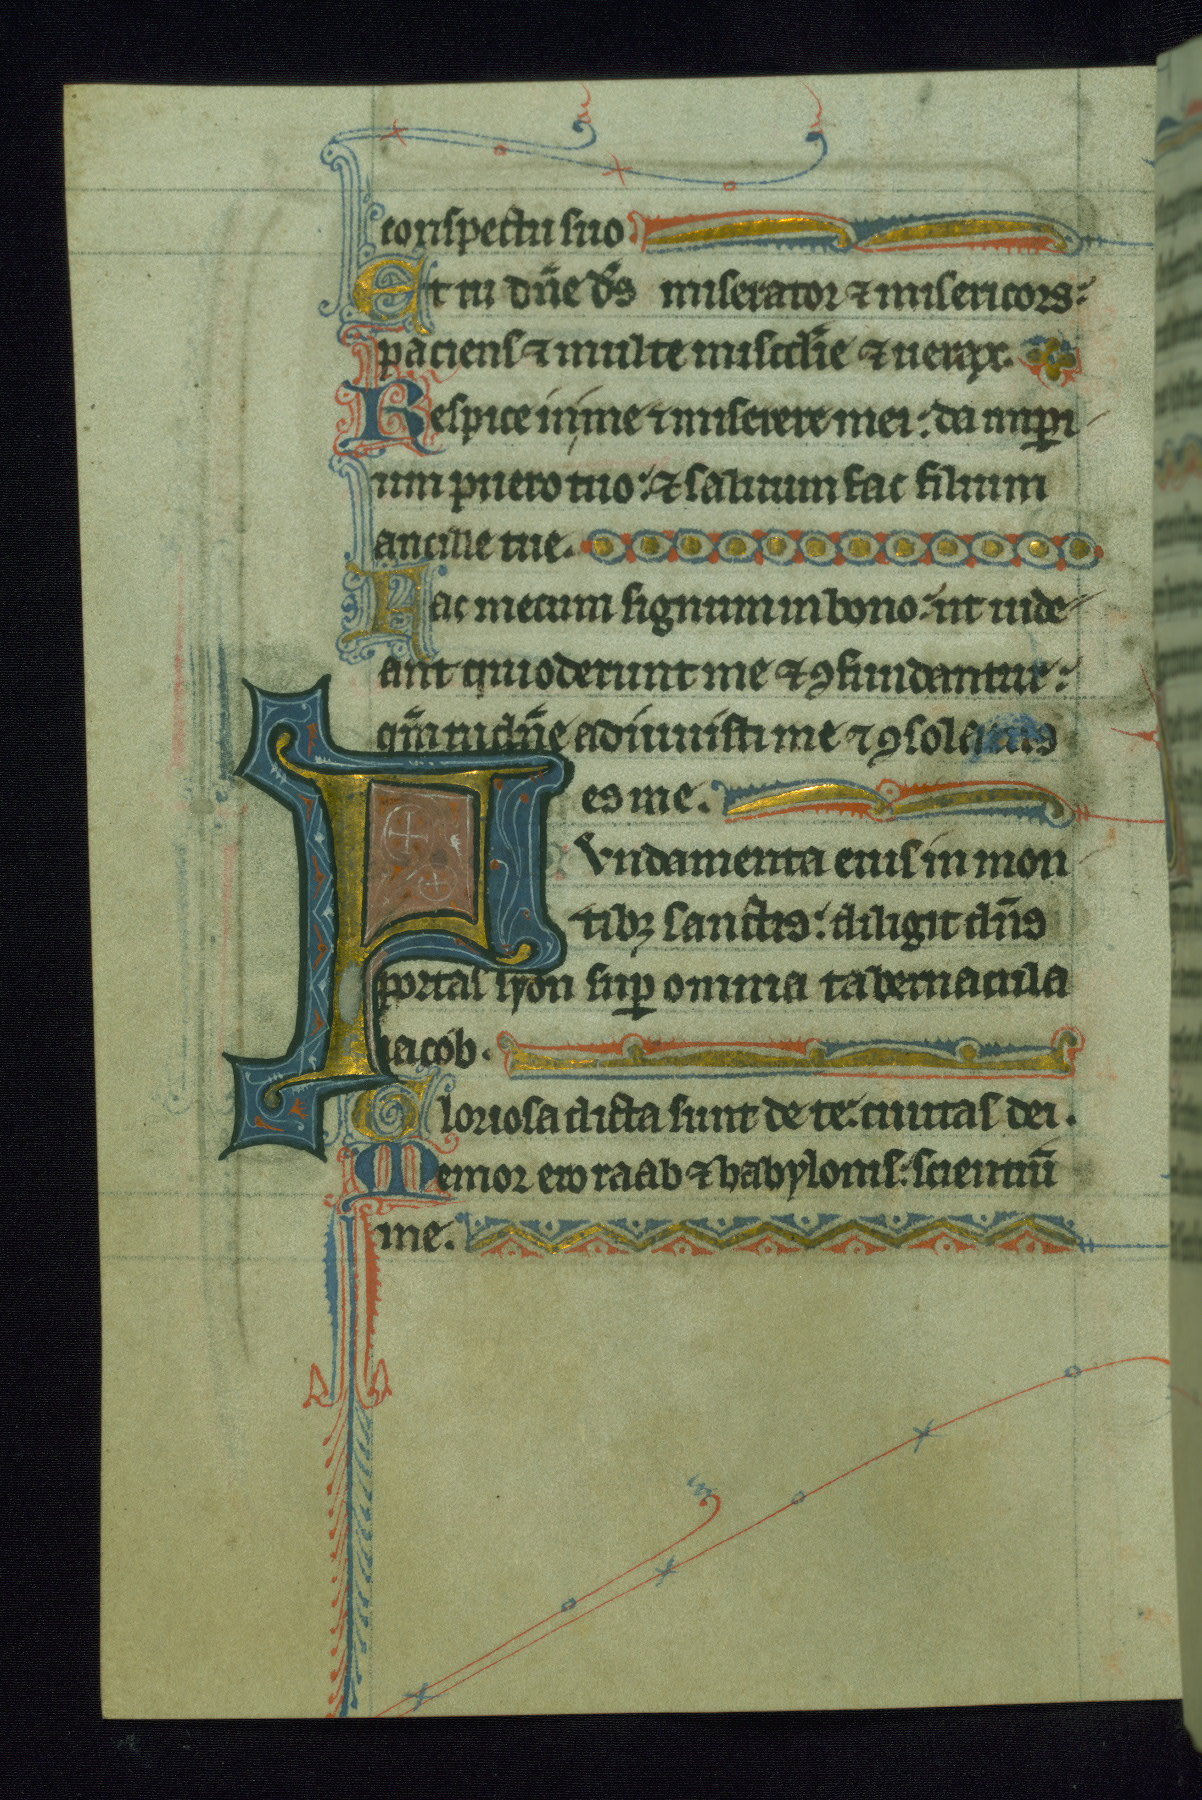 conspectu suo
Et tu dn̄e ds̄ miserator ⁊ misericors:
paciens ⁊ multe misc̄die ⁊ uerax.
Respice in me ⁊ miserere mei: da imꝑi
um puero tuo: ⁊ saluum fac filium
ancille tue.
Fac mecum signum in bono: ut uide
ant qui oderunt me ⁊ ꝯfundantur:
qm̄ tu dn̄e adiuuisti me ⁊ ꝯsolatus
es me.
Fundamenta eius in mon
tibꝫ sanctis: diligit dn̄s
portas syon suꝑ omnia tabernacula
iacob.
Gloriosa dicta sunt de te: ciuitas dei.
Memor ero raab ⁊ babylonis: scientiū
me.